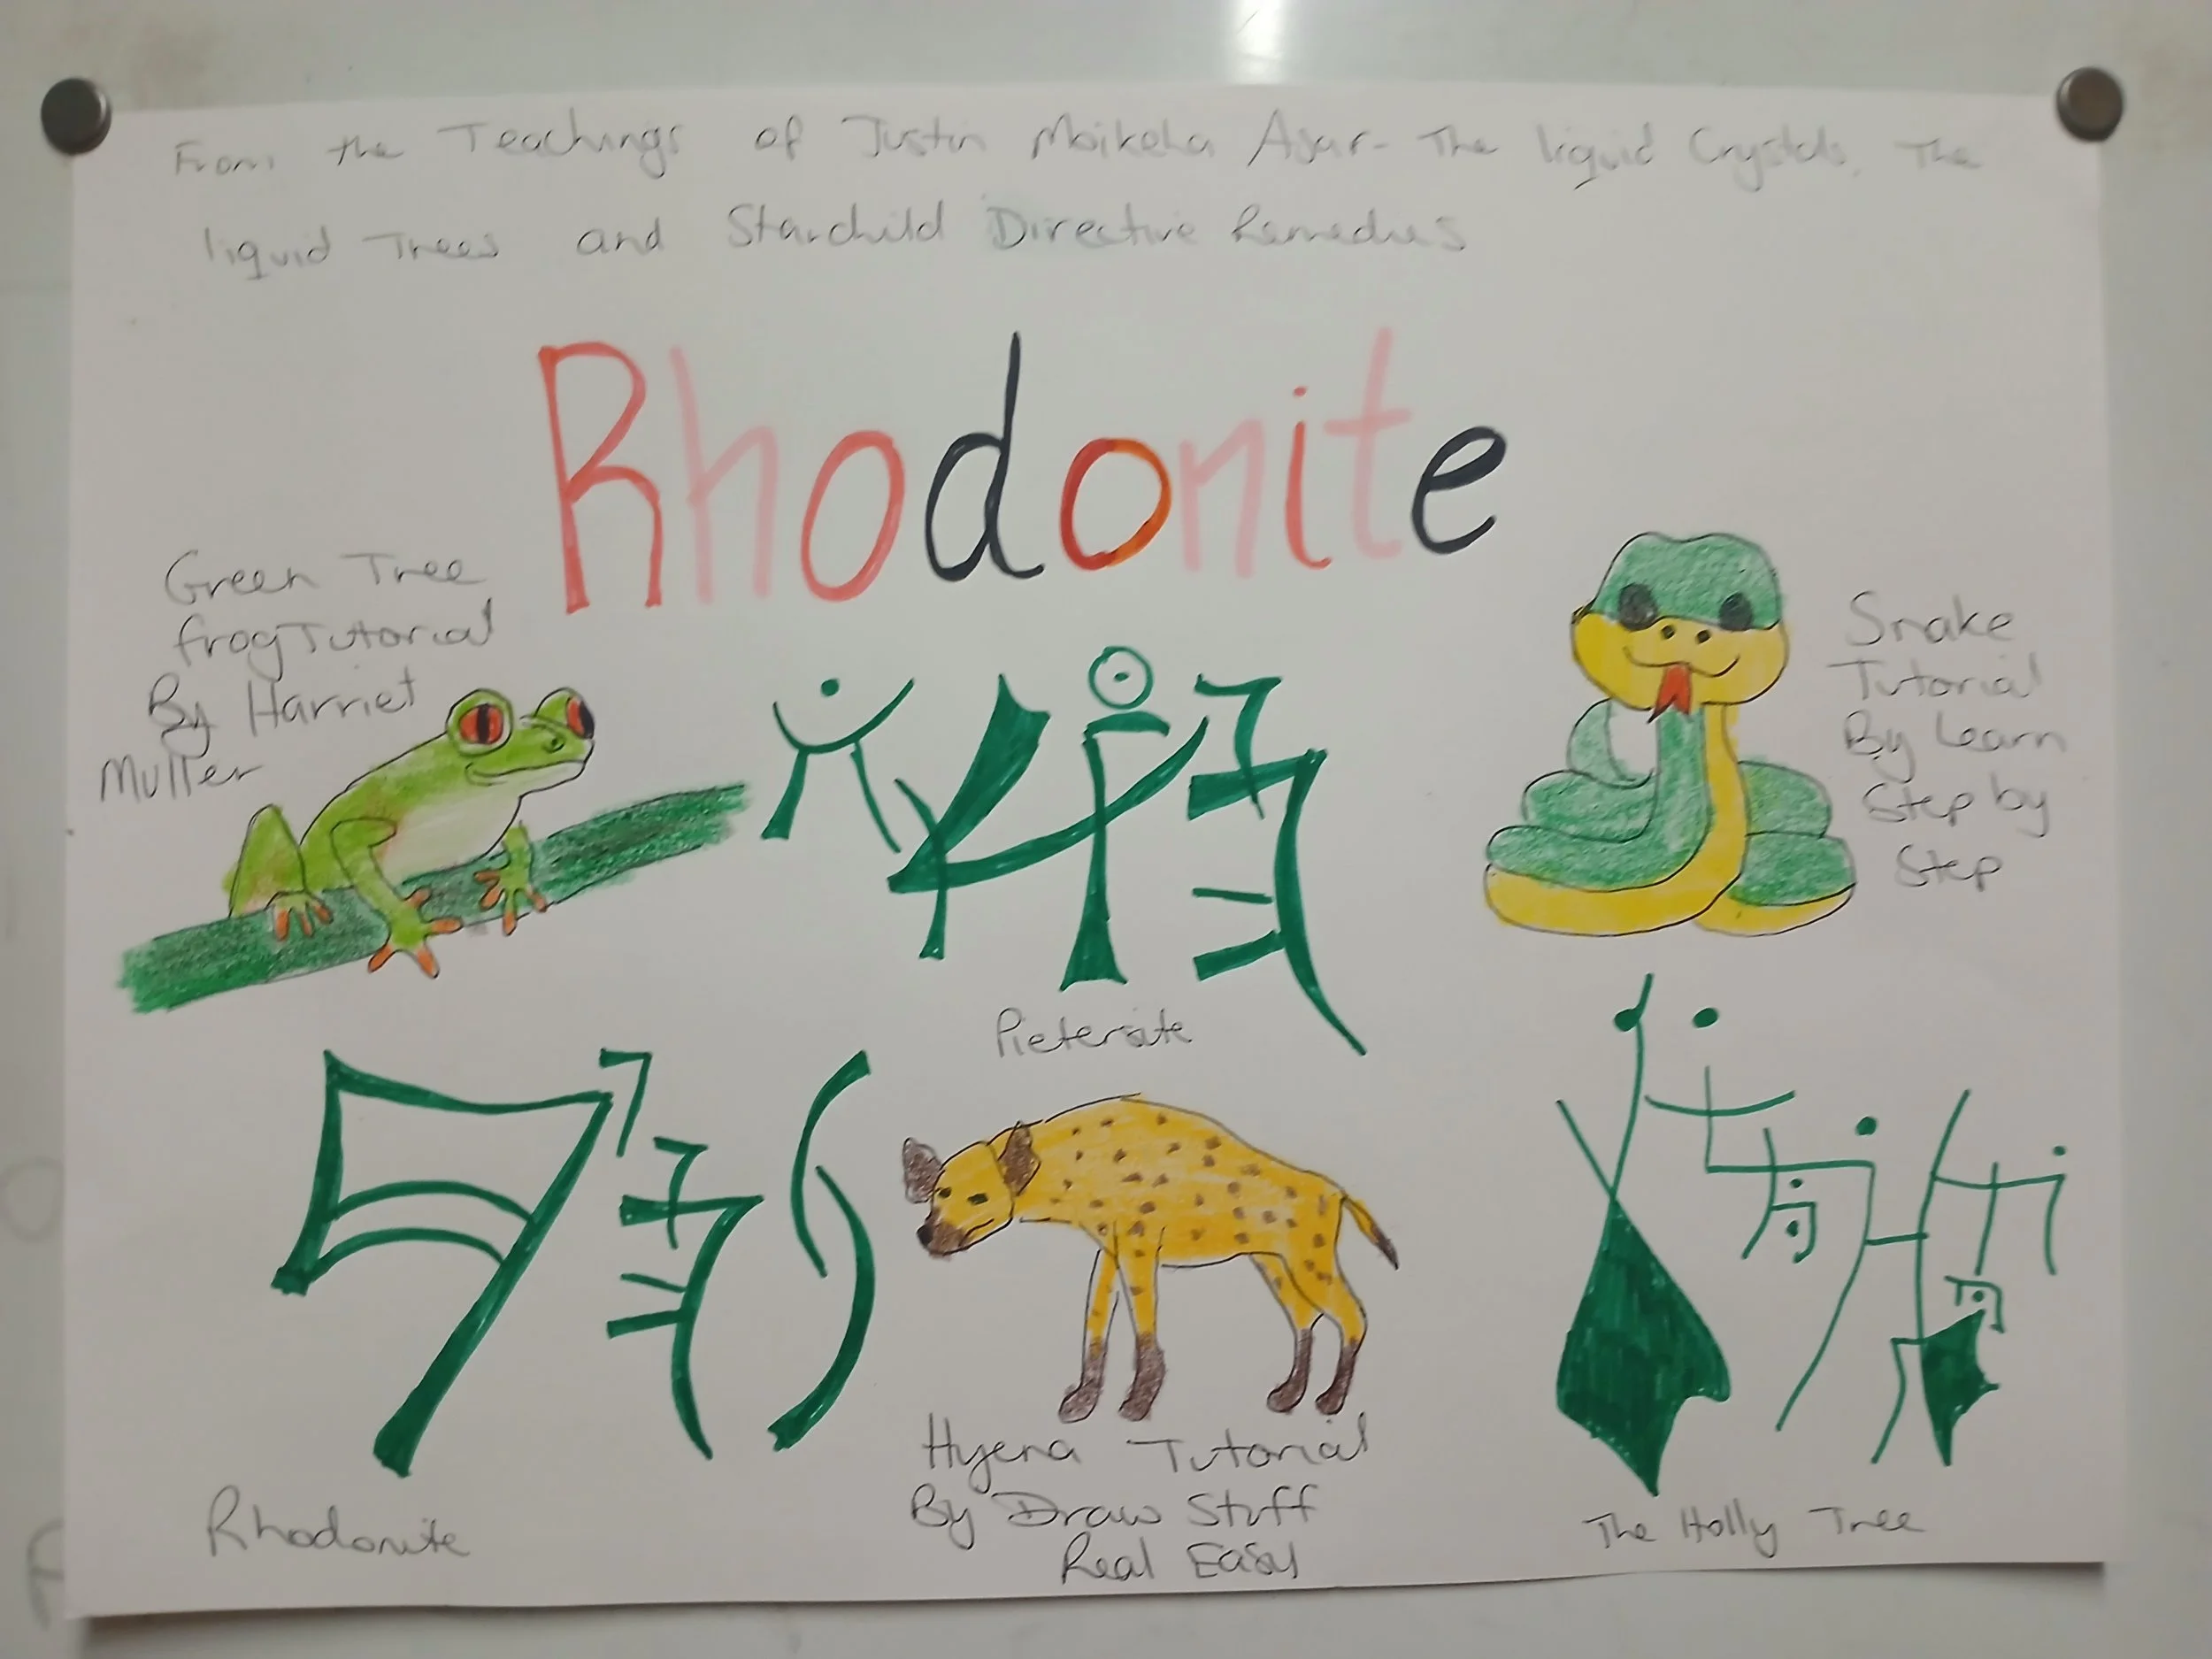 From the Teachings of Justin Moikeha Asar - The liquid Crystals, The
liquid Trees and Starchild Directive Remedies
Rhodonite
Green Tree
frog Tutorial
By Harriet
Muller
Snake
Tutorial
By Learn
Step by
Step
Pietersite
Rhodonite
Hyena Tutorial
By Draw Stuff
Real Easy
The Holly Tree